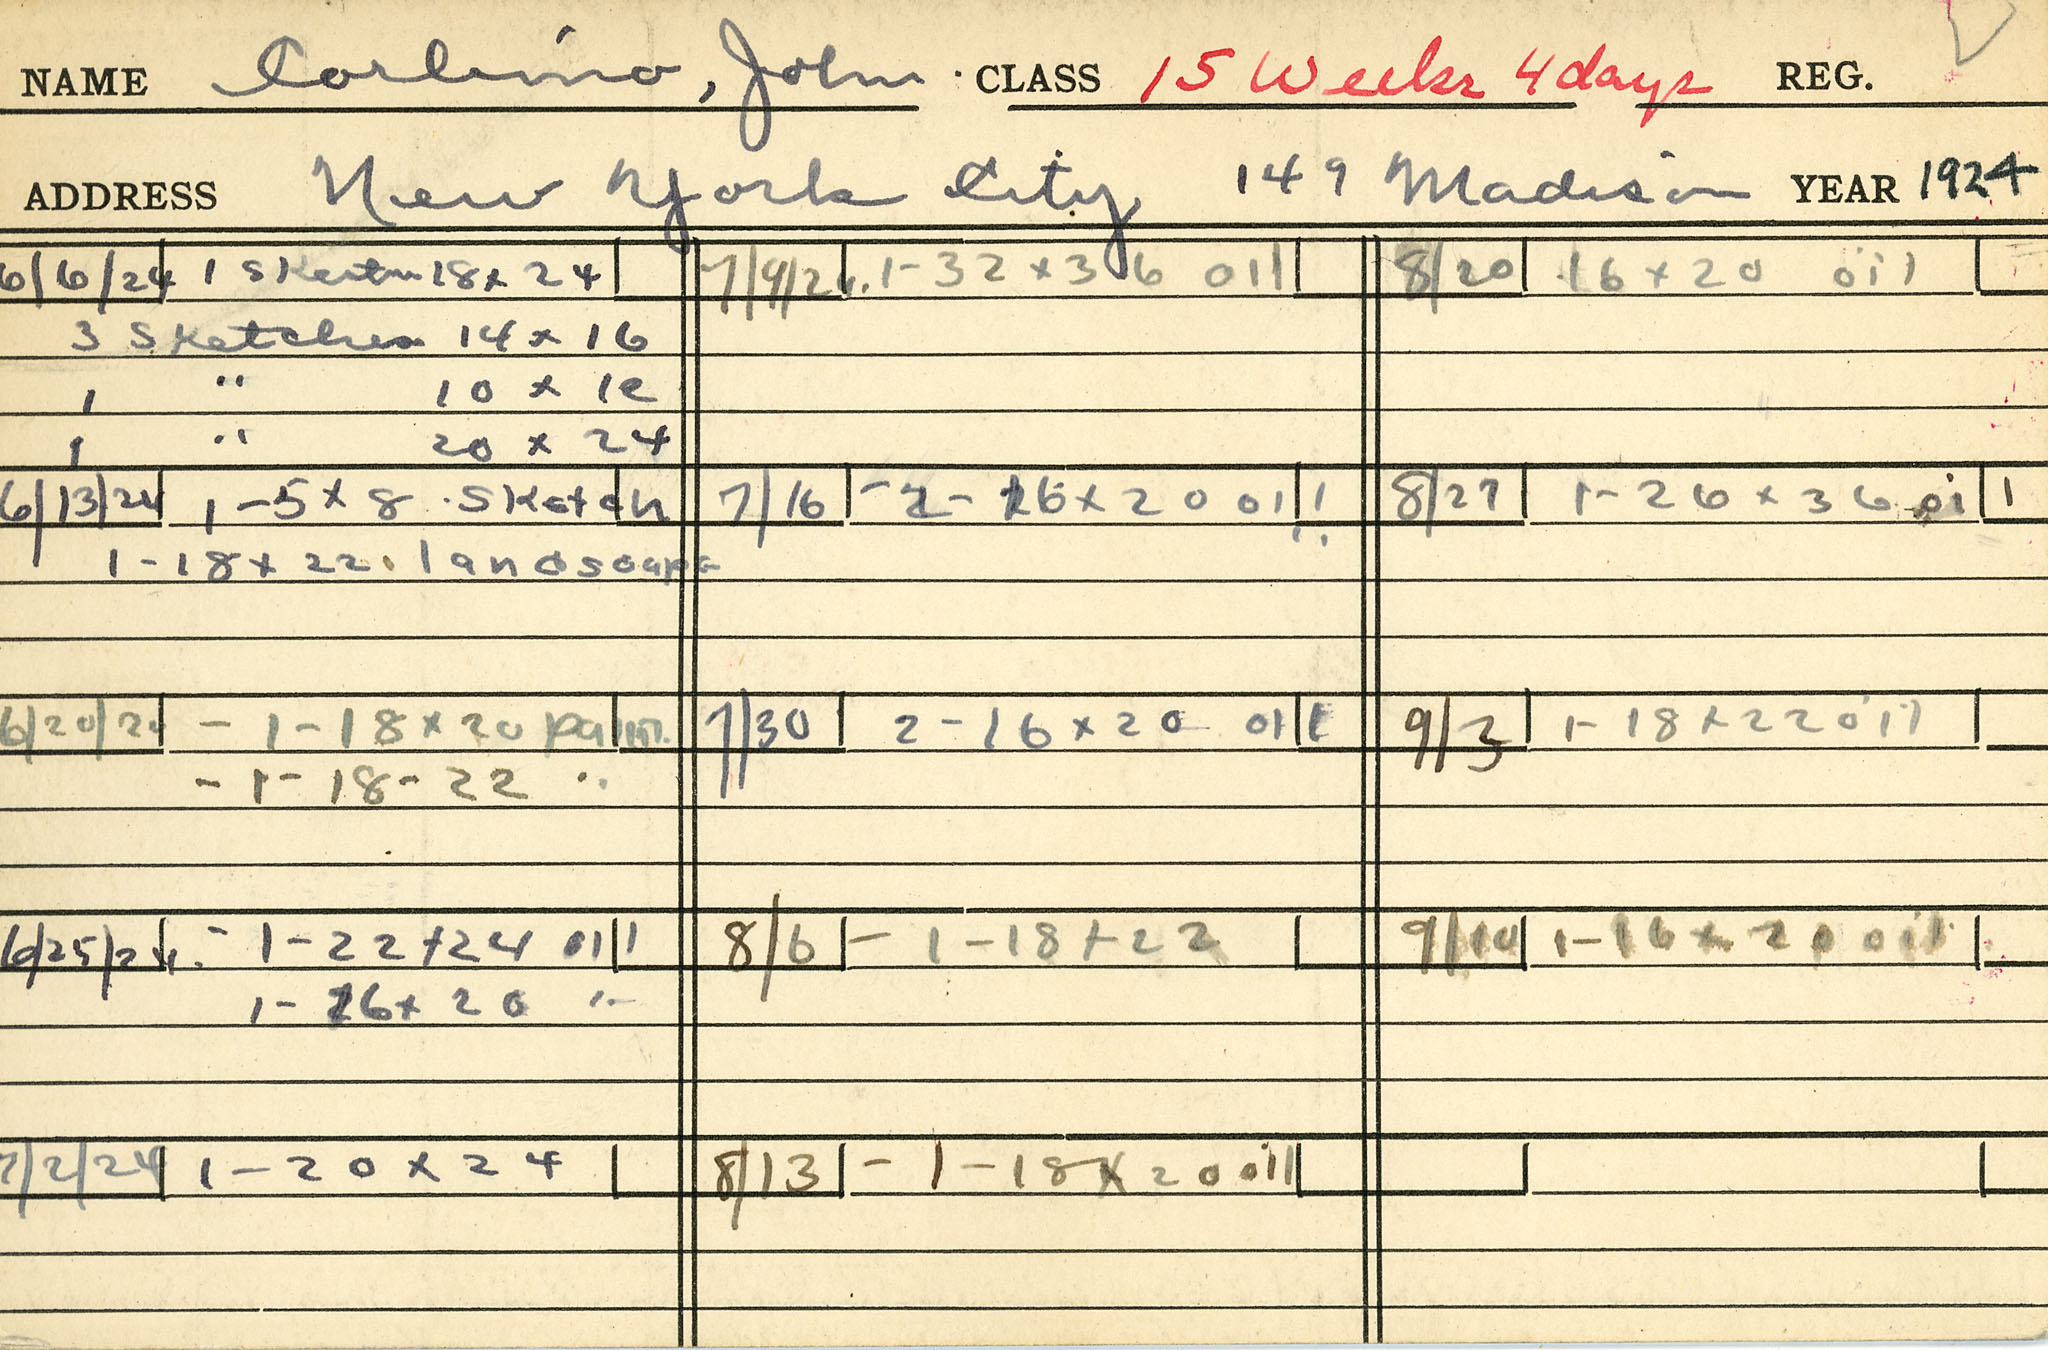 NAME Corbino, John CLASS 15 Weeks 4 days REG.
ADDRESS New York City 149 Madison YEAR 1924
6/6/24 1 Sketch 18 x 24
3 Sketches 14 x 16
1 " 10 x 12
1 " 20 x 24
6/13/24 1 - 5 x 8 Sketch
1 - 18 x 22 landscape
6/20/24 - 1 - 18 x 20 paint.
- 1 - 18 - 22 "
6/25/24 - 1 - 22 x 24 oil
1 - 16 x 20 "
7/2/24 1 - 20 x 24
7/9/24 1 - 32 x 36 oil
7/16 - 2 - 16 x 20 oil
7/30 2 - 16 x 20 oil
8/6 - 1 - 18 x 22
8/13 - 1 - 18 x 20 oil
8/20 16 x 20 oil
8/27 1 - 26 x 36 oil
9/3 1 - 18 x 22 oil
9/10 1 - 16 x 20 oil